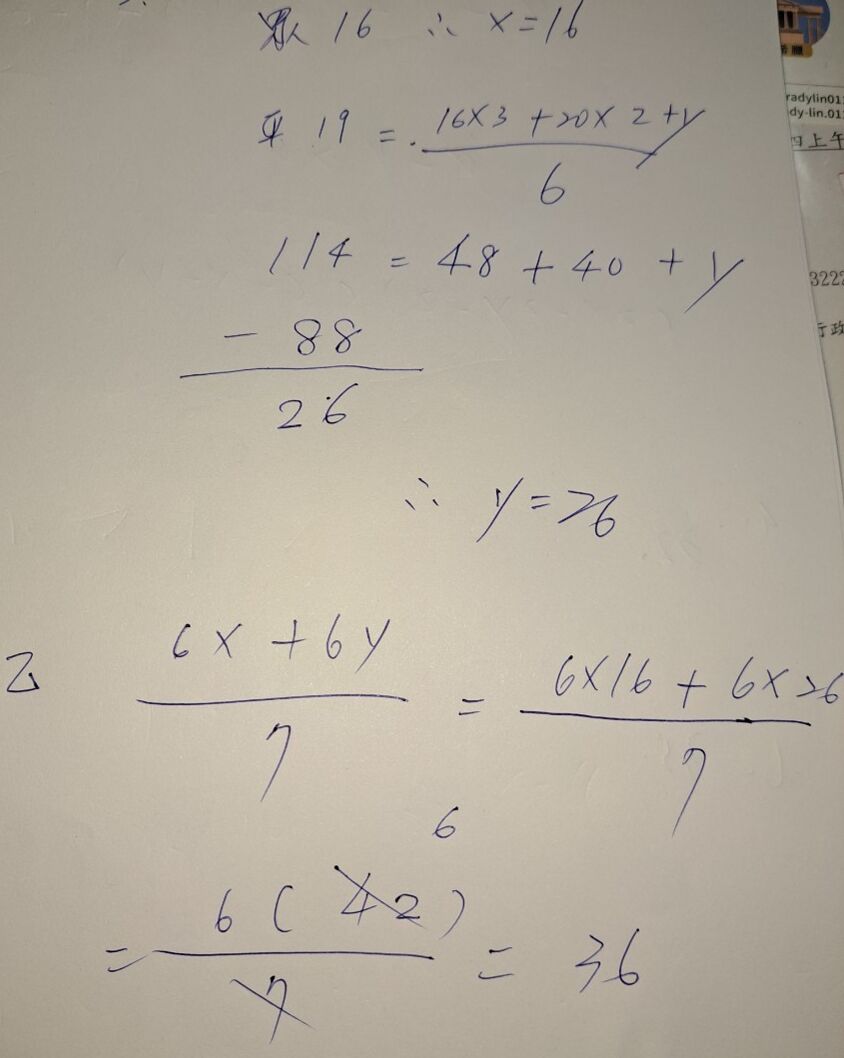 眾 16 ∴ x=16
平 19 = 16x3 +20x 2 +y
6
114 = 48 + 40 + y
- 88
26
∴ y=26
乙 6x +6y = 6x16 + 6x26
7 7
6
= 6 ( 42 ) = 36
7
radylin01
dy-lin.01
四上午
322
行政